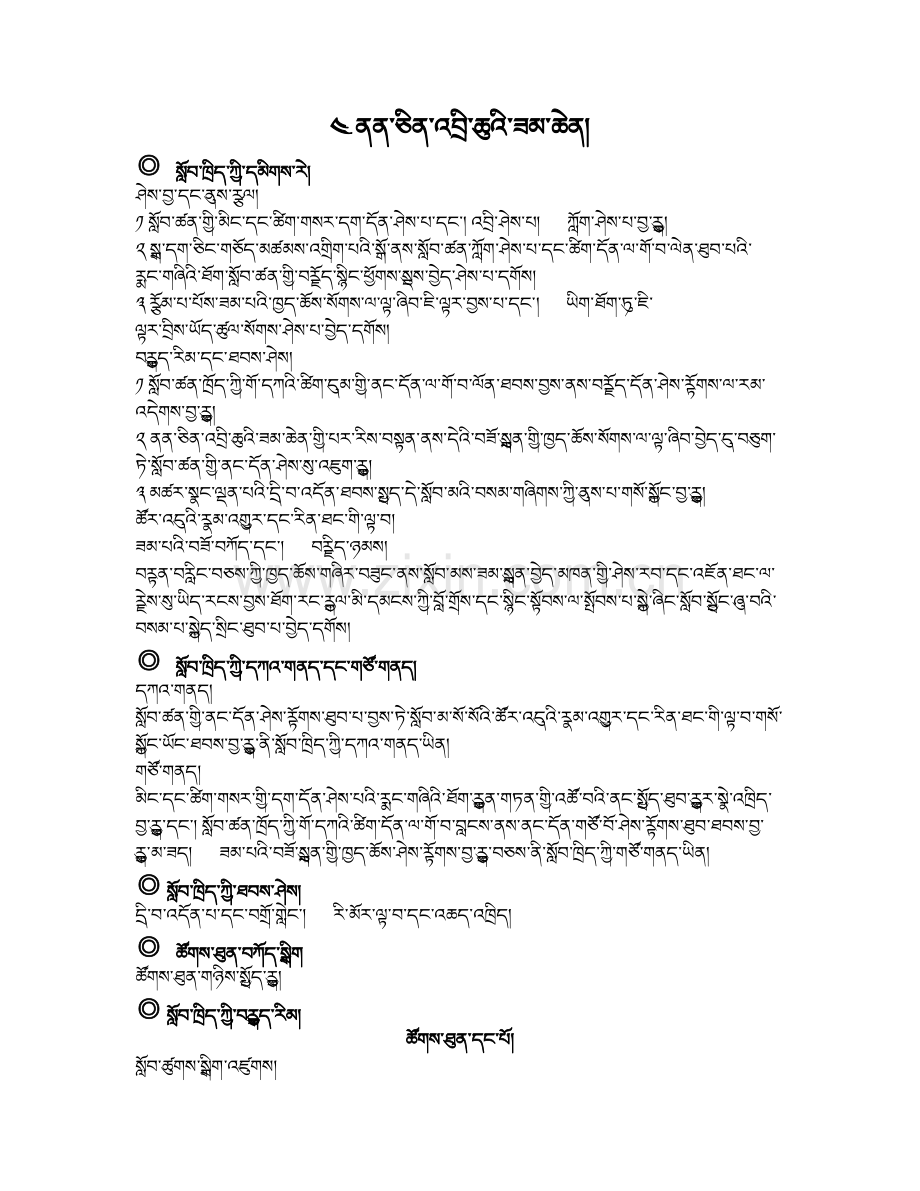 ༤ ནན་ཅིན་འབྲི་ཆུའི་ཟམ་ཆེན།
◎ སློབ་ཁྲིད་ཀྱི་དམིགས་རེ།
ཤེས་བྱ་དང་ནུས་རྩལ།
༡ སློབ་ཚན་གྱི་མིང་དང་ཚིག་གསར་དག་དོན་ཤེས་པ་དང་། འབྲི་ཤེས་པ། ཀློག་ཤེས་པ་བྱ་རྒྱུ།
༢ སྒྲ་དག་ཅིང་གཅོད་མཚམས་འགྲིག་པའི་སྒོ་ནས་སློབ་ཚན་ཀློག་ཤེས་པ་དང་ཚིག་དོན་ལ་གོ་བ་ལེན་ཐུབ་པའི་
རྨང་གཞིའི་ཐོག་སློབ་ཚན་གྱི་བརྗོད་སྙིང་ཕྱོགས་སྡུས་བྱེད་ཤེས་པ་དགོས།
༣ རྩོམ་པ་པོས་ཟམ་པའི་ཁྱད་ཆོས་སོགས་ལ་ལྟ་ཞིབ་ཇི་ལྟར་བྱས་པ་དང་། ཡིག་ཐོག་ཏུ་ཇི་
ལྟར་བྲིས་ཡོད་ཚུལ་སོགས་ཤེས་པ་བྱེད་དགོས།
བརྒྱུད་རིམ་དང་ཐབས་ཤེས།
༡ སློབ་ཚན་ཁྲོད་ཀྱི་གོ་དཀའི་ཚིག་དུམ་གྱི་ནང་དོན་ལ་གོ་བ་ལོན་ཐབས་བྱས་ནས་བརྗོད་དོན་ཤེས་རྟོགས་ལ་རམ་
འདེགས་བྱ་རྒྱུ།
༢ ནན་ཅིན་འབྲི་ཆུའི་ཟམ་ཆེན་གྱི་པར་རིས་བསྟན་ནས་དེའི་བཟོ་སྐྲུན་གྱི་ཁྱད་ཆོས་སོགས་ལ་ལྟ་ཞིབ་བྱེད་དུ་བཅུག་
ཏེ་སློབ་ཚན་གྱི་ནང་དོན་ཤེས་སུ་འཇུག་རྒྱུ།
༣ མཚར་སྣང་ལྡན་པའི་དྲི་བ་འདོན་ཐབས་སྤྱད་དེ་སློབ་མའི་བསམ་གཞིགས་ཀྱི་ནུས་པ་གསོ་སྐྱོང་བྱ་རྒྱུ།
ཚོར་འདུའི་རྣམ་འགྱུར་དང་རིན་ཐང་གི་ལྟ་བ།
ཟམ་པའི་བཟོ་བཀོད་དང་། བརྗིད་ཉམས།
བརྟན་བརླིང་བཅས་ཀྱི་ཁྱད་ཆོས་གཞིར་བཟུང་ནས་སློབ་མས་ཟམ་སྐྲུན་བྱེད་མཁན་གྱི་ཤེས་རབ་དང་འཇོན་ཐང་ལ་
རྗེས་སུ་ཡིད་རངས་བྱས་ཐོག་རང་རྒྱལ་མི་དམངས་ཀྱི་བློ་གྲོས་དང་སྙིང་སྟོབས་ལ་སྤོབས་པ་སྐྱེ་ཞིང་སློབ་སྦྱོང་ཞུ་བའི་
བསམ་པ་སྐྱེད་སྲིང་ཐུབ་པ་བྱེད་དགོས།
◎ སློབ་ཁྲིད་ཀྱི་དཀའ་གནད་དང་གཙོ་གནད།
དཀའ་གནད།
སློབ་ཚན་གྱི་ནང་དོན་ཤེས་རྟོགས་ཐུབ་པ་བྱས་ཏེ་སློབ་མ་སོ་སོའི་ཚོར་འདུའི་རྣམ་འགྱུར་དང་རིན་ཐང་གི་ལྟ་བ་གསོ་
སྐྱོང་ཡོང་ཐབས་བྱ་རྒྱུ་ནི་སློབ་ཁྲིད་ཀྱི་དཀའ་གནད་ཡིན།
གཙོ་གནད།
མིང་དང་ཚིག་གསར་གྱི་དག་དོན་ཤེས་པའི་རྨང་གཞིའི་ཐོག་རྒྱུན་གཏན་གྱི་འཚོ་བའི་ནང་སྤྱོད་ཐུབ་རྒྱུར་སྣེ་འཁྲིད་
བྱ་རྒྱུ་དང་། སློབ་ཚན་ཁྲོད་ཀྱི་གོ་དཀའི་ཚིག་དོན་ལ་གོ་བ་བླངས་ནས་ནང་དོན་གཙོ་བོ་ཤེས་རྟོགས་ཐུབ་ཐབས་བྱ་
རྒྱུ་མ་ཟད། ཟམ་པའི་བཟོ་སྐྲུན་གྱི་ཁྱད་ཆོས་ཤེས་རྟོགས་བྱ་རྒྱུ་བཅས་ནི་སློབ་ཁྲིད་ཀྱི་གཙོ་གནད་ཡིན།
◎ སློབ་ཁྲིད་ཀྱི་ཐབས་ཤེས།
དྲི་བ་འདོན་པ་དང་བགྲོ་གླེང་། རི་མོར་ལྟ་བ་དང་འཆད་འཁྲིད།
◎ ཚོགས་ཐུན་བཀོད་སྒྲིག
ཚོགས་ཐུན་གཉིས་སྤྱོད་རྒྱུ།
◎ སློབ་ཁྲིད་ཀྱི་བརྒྱུད་རིམ།
ཚོགས་ཐུན་དང་པོ།
སློབ་ཚུགས་སྒྲིག་འཛུགས།